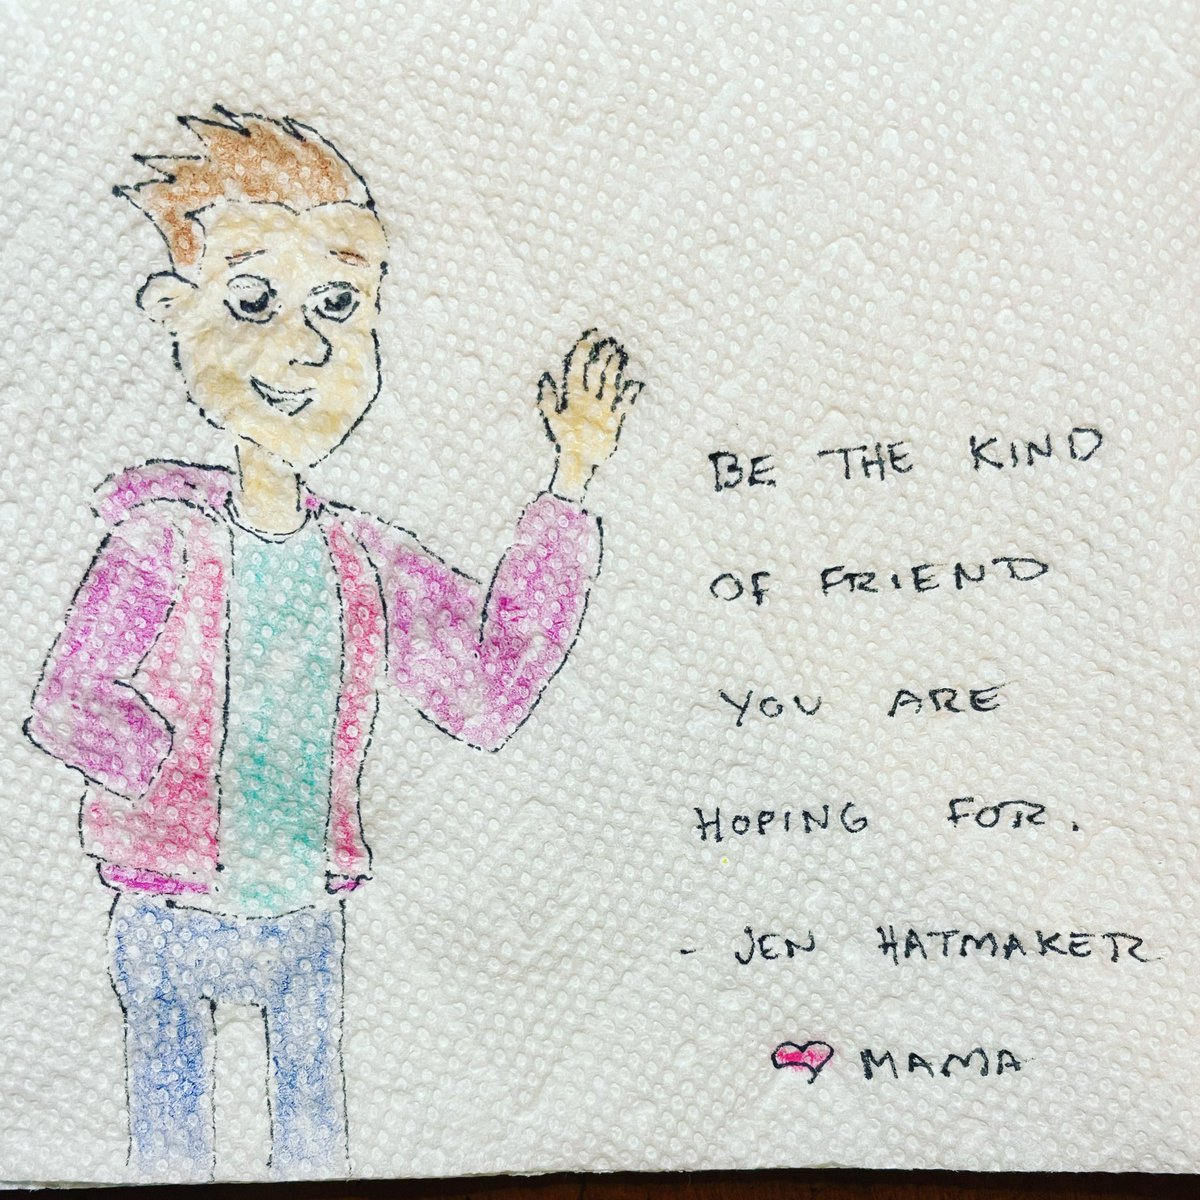 BE THE KIND
OF FRIEND
YOU ARE
HOPING FOR.
- JEN HATMAKER
MAMA